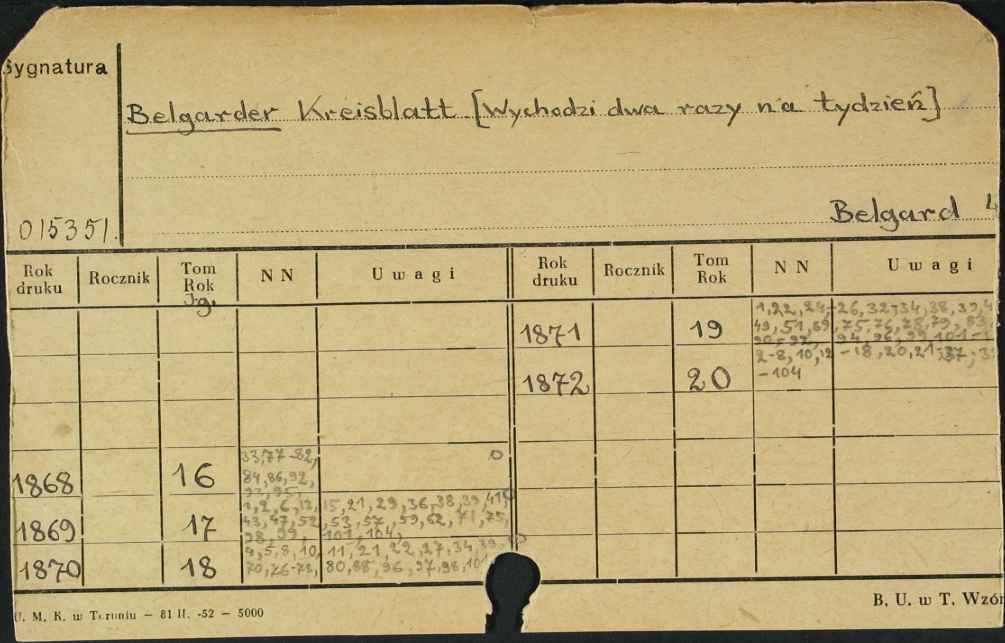 Sygnatura
Belgarder Kreisblatt [Wychodzi dwa razy na tydzień]
Belgard 4
015351.
Rok druku Rocznik Tom Rok Jg. NN Uwagi Rok druku Rocznik Tom Rok NN Uwagi
1871 19 1,22,24,-26,32,-34,38,39,4
49,51,69,75,76,78,79,83,
90-92, 94,96,99,101-
1872 20 2-8,10,12-18,20,21,-37,3
-104
1868 16 33,77-82,
84,86,92,
93,95,
1869 17 1,2,6,12,15,21,29,36,38,39,41,
43,47,52,53,57,59,62,71,75,
98,99,101,104,
1870 18 4,5,8,10,11,21,22,27,34,39,
70,76-78,80,88,96,97,98,10
U. M. K. w Toruniu – 81 II. -52 – 5000
B. U. w T. Wzór